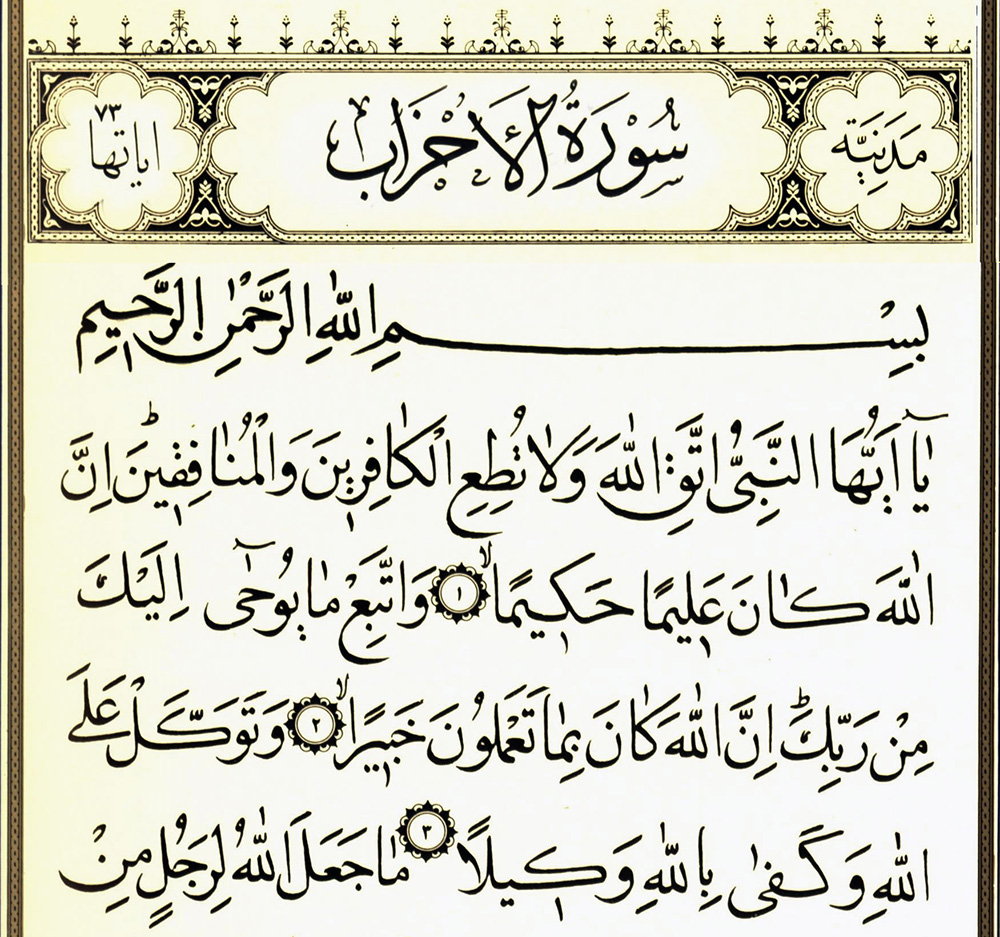 مَدَنِيَّة
سُورَةُ الْأَحْزَابِ
٧٣ اياتها
بِسْمِ اللّٰهِ الرَّحْمٰنِ الرَّحِيمِ
يَٓا اَيُّهَا النَّبِيُّ اتَّقِ اللّٰهَ وَلَا تُطِعِ الْكَافِرِينَ وَالْمُنَافِقِينَۜ اِنَّ
اللّٰهَ كَانَ عَلِيمًا حَكِيمًاۙ ١ وَاتَّبِعْ مَا يُوحٰٓى اِلَيْكَ
مِنْ رَبِّكَۜ اِنَّ اللّٰهَ كَانَ بِمَا تَعْمَلُونَ خَبِيرًاۙ ٢ وَتَوَكَّلْ عَلَى
اللّٰهِ وَكَفٰى بِاللّٰهِ وَكِيلًا ٣ مَا جَعَلَ اللّٰهُ لِرَجُلٍ مِنْ